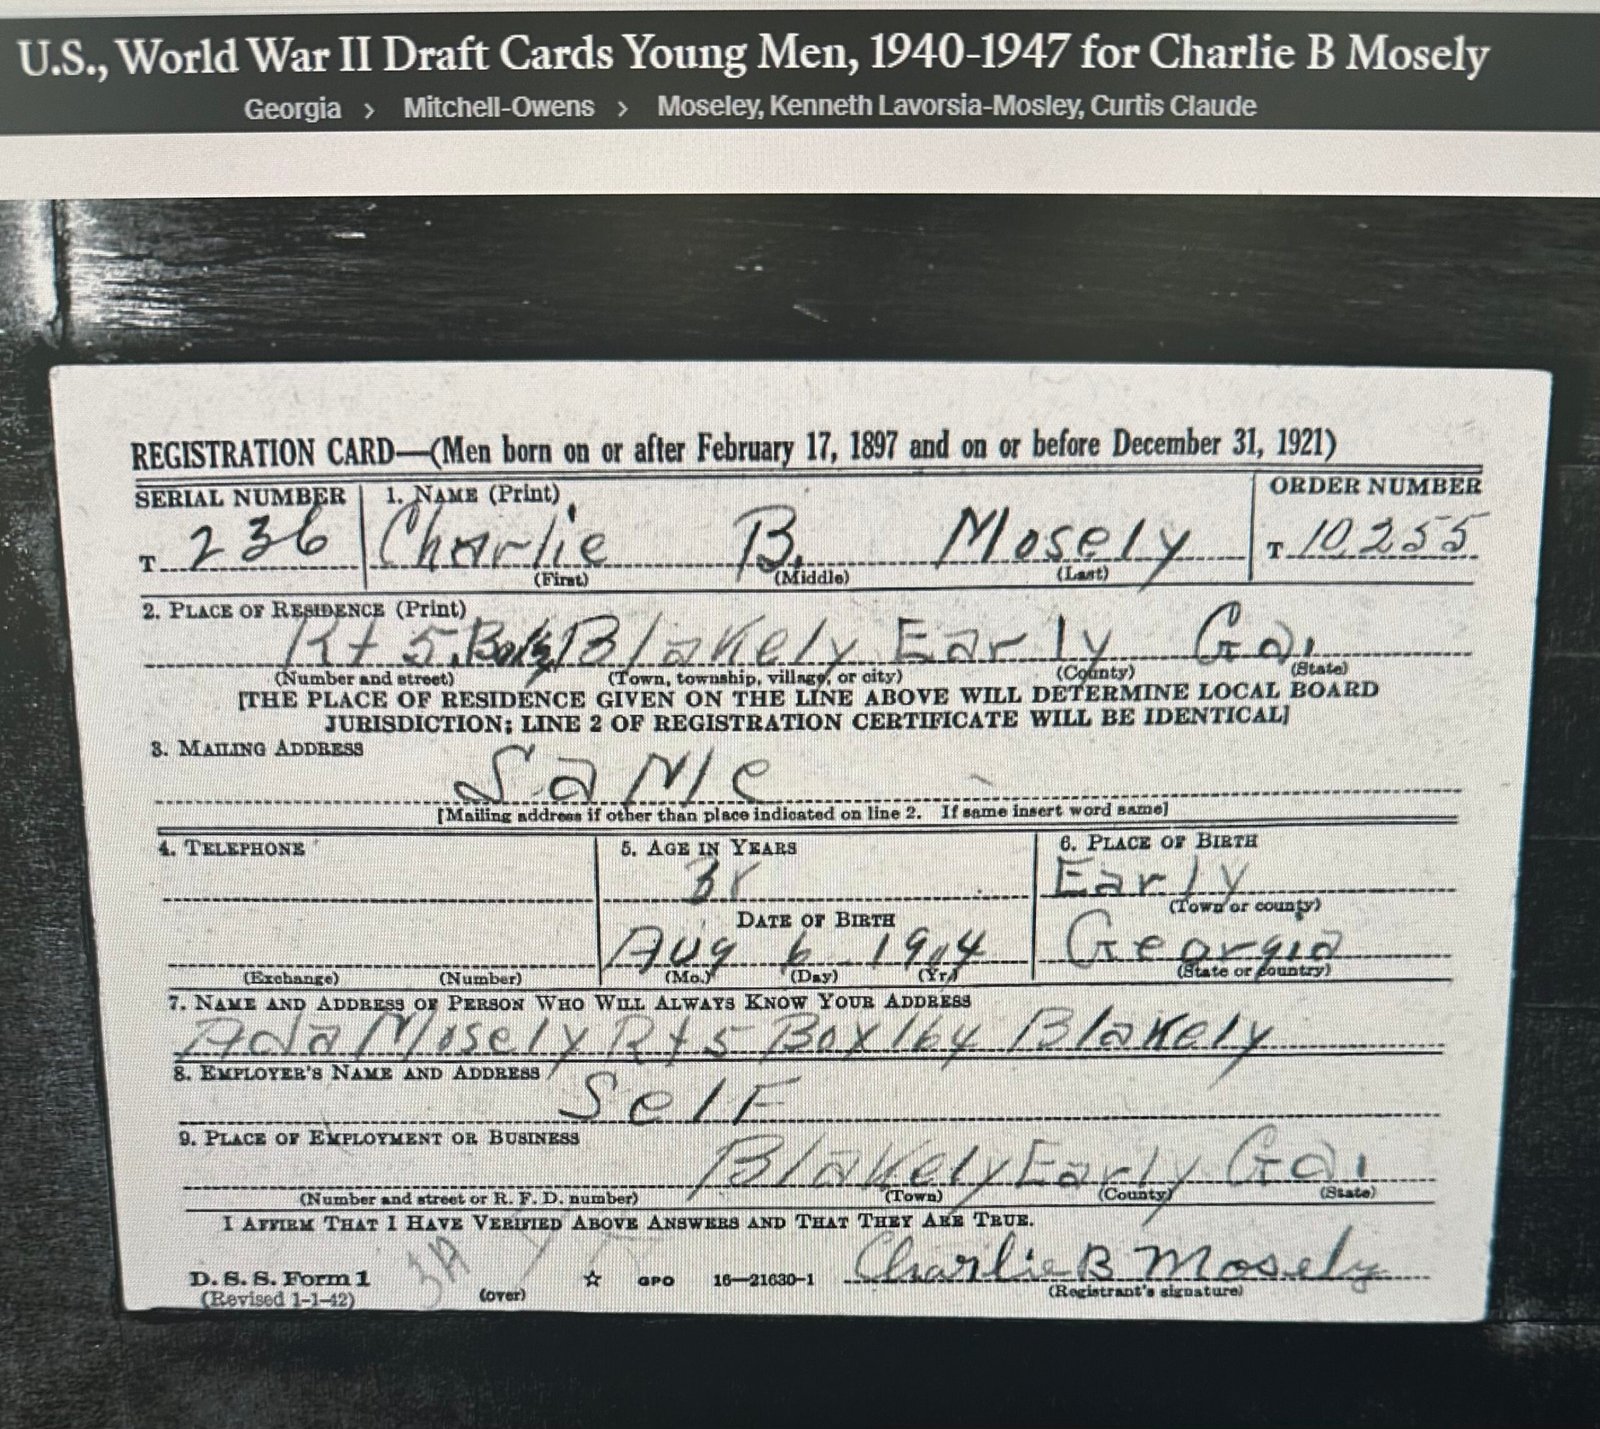 U.S., World War II Draft Cards Young Men, 1940-1947 for Charlie B Mosely
Georgia > Mitchell-Owens > Moseley, Kenneth Lavorsia-Mosley, Curtis Claude
REGISTRATION CARD—(Men born on or after February 17, 1897 and on or before December 31, 1921)
SERIAL NUMBER 1. NAME (Print) ORDER NUMBER
T 236 Charlie B. Mosely T 10255
(First) (Middle) (Last)
2. PLACE OF RESIDENCE (Print)
Rt 5, Blakely Early Ga.
(Number and street) (Town, township, village, or city) (County) (State)
[THE PLACE OF RESIDENCE GIVEN ON THE LINE ABOVE WILL DETERMINE LOCAL BOARD
JURISDICTION; LINE 2 OF REGISTRATION CERTIFICATE WILL BE IDENTICAL]
3. MAILING ADDRESS
Same
[Mailing address if other than place indicated on line 2. If same insert word same]
4. TELEPHONE 5. AGE IN YEARS 6. PLACE OF BIRTH
Early
(Town or county)
DATE OF BIRTH
Aug 6 1904 Georgia
(Exchange) (Number) (Mo.) (Day) (Yr.) (State or country)
7. NAME AND ADDRESS OF PERSON WHO WILL ALWAYS KNOW YOUR ADDRESS
Ada Mosely Rt 5 Box 164 Blakely
8. EMPLOYER'S NAME AND ADDRESS
Self
9. PLACE OF EMPLOYMENT OR BUSINESS
Blakely Early Ga.
(Number and street or R. F. D. number) (Town) (County) (State)
I AFFIRM THAT I HAVE VERIFIED ABOVE ANSWERS AND THAT THEY ARE TRUE.
3A Charlie B Mosely
D. S. S. Form 1 ☆ GPO 16—21630-1
(Revised 1-1-42) (over) (Registrant's signature)